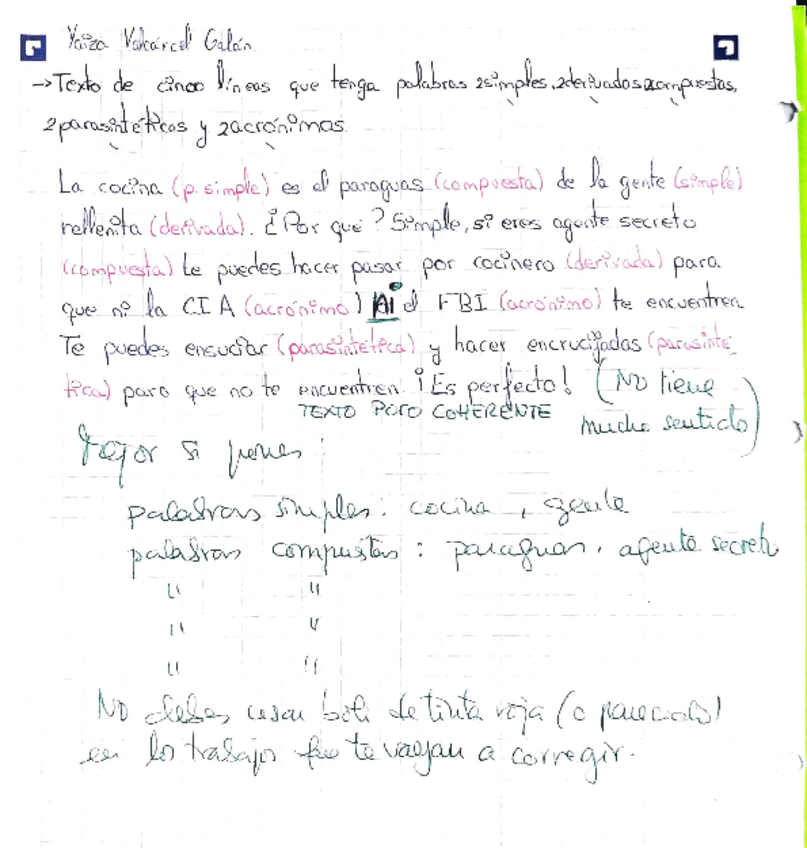 Yaiza Valcárcel Galán
→Texto de cinco líneas que tenga palabras 2simples, 2derivadas 2compuestas,
2parasintéticas y 2acrónimas.
La cocina (p. simple) es el paraguas (compuesta) de la gente (simple)
rellenita (derivada). ¿Por qué? Simple, si eres agente secreto
(compuesta) te puedes hacer pasar por cocinero (derivada) para
que ni la CIA (acrónimo) Ni el FBI (acrónimo) te encuentren
Te puedes ensuciar (parasintética) y hacer encrucijadas (parasinté
tica) para que no te encuentren. ¡Es perfecto! (No tiene
mucho sentido)
TEXTO POCO COHERENTE
Mejor si pones:
palabras simples: cocina, gente
palabras compuestas: paraguas, agente secreto
" "
" "
" "
No debes usar boli de tinta roja (o parecido)
en los trabajos que te vayan a corregir.